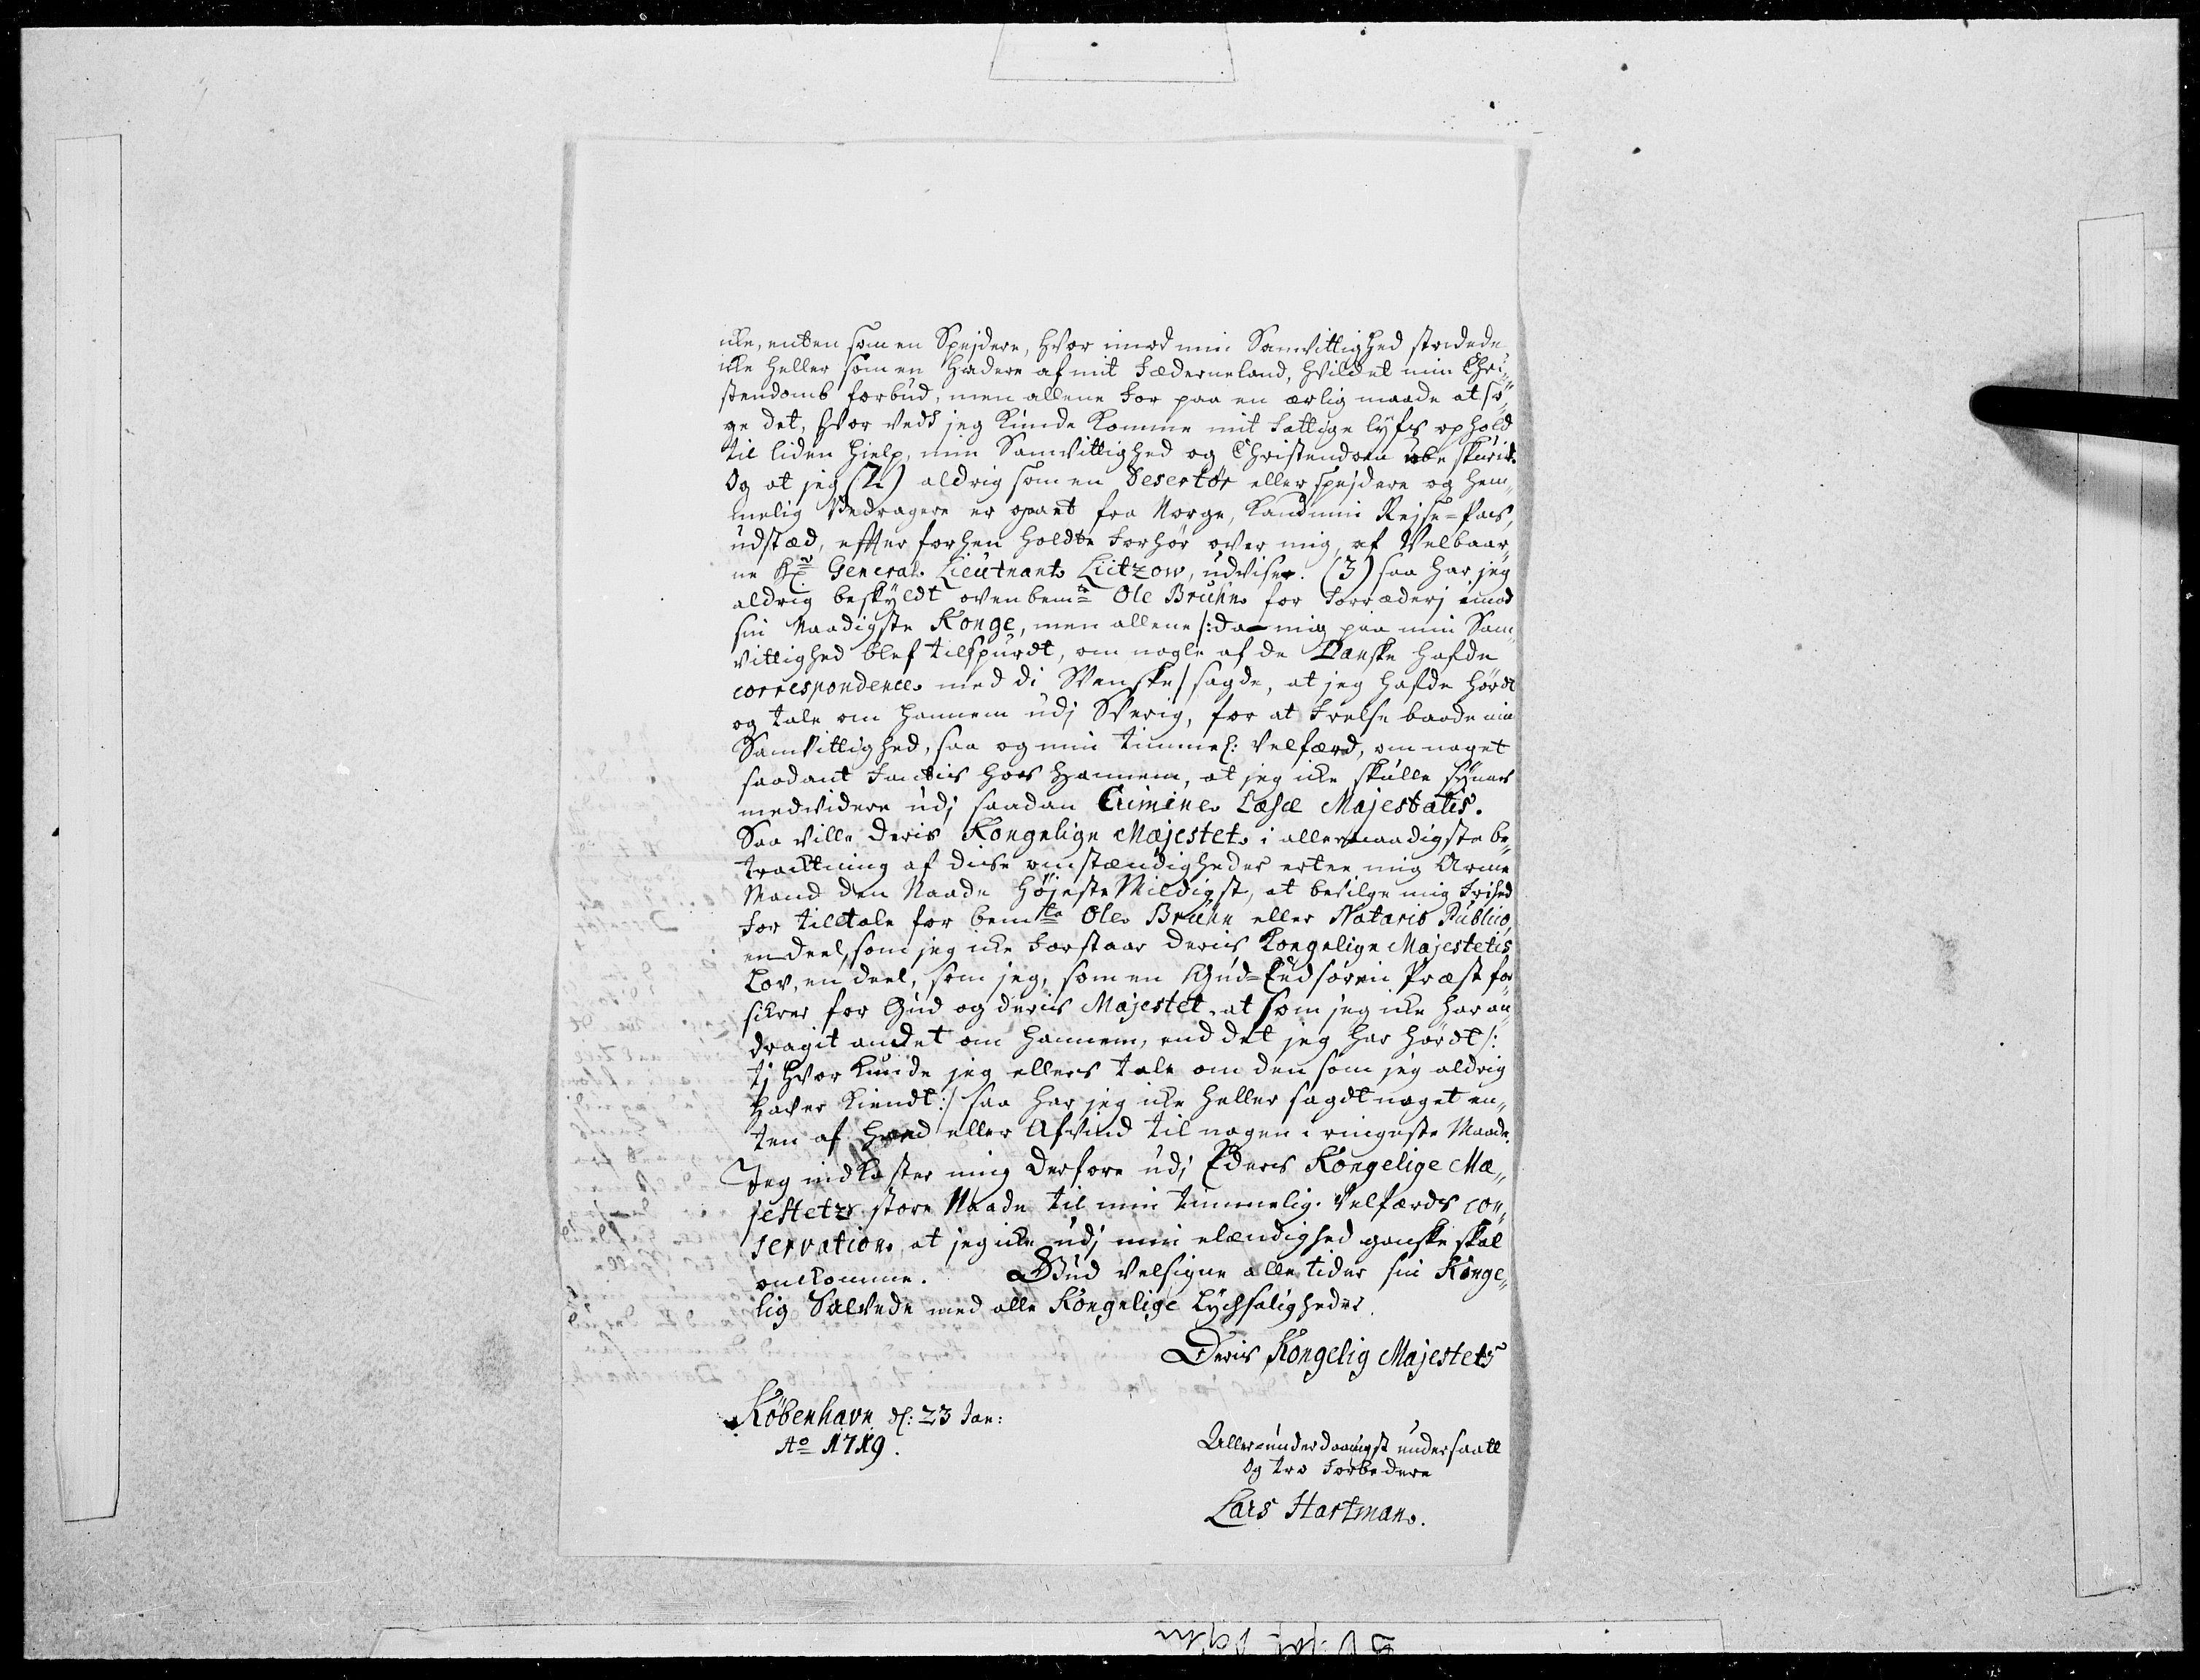 icke, enten som en Spejdere, hvor imod min Samvittighed stridede
icke heller som en Hadere af mit Fæderneland, hvilcket min Chri¬
stendomb forbud, men allene for paa en ærlig maade at sø¬
ge det, hvor vedt jeg kunde komme mit fattige lifs ophold
til liden hielp, min Samvittighed og Christendom ube skurit.
Og at jeg (2) aldrig som en Desertør eller spejdere og hem¬
melig Bedragere er gaaet fra Norge, kand min Rejse=Pas,
udstæd, effter forhen holdte Forhør over mig, af Velbaar¬
ne Hr General Lieutnant Lützow, udviser. (3) saa har jeg
aldrig beskÿldt ovenbemte Ole Bruhn for Forræderj imod
sin Naadigste Konge, men allene /: da mig paa min Sam¬
vittighed blef tilspurdt, om nogle af de Danske hafde
correspondence med di Svenske/ sagde, at jeg hafde hørdt
og tale om hannem udj Sverig, for at frelse baade min
Samvittighed, saa og min timmel: Velfærd, om noget
saadant fantis hos hannem, at jeg icke skulle sÿnes
medvidere udj saadan Crimine Læsæ Majestatis.
Saa ville Deris Kongelige Majestet i allernaadigste be¬
tracktning af disse omstændigheder ertee mig Arme
Mand den Naade Højeste Mildigst, at befilge mig frihed
for tilltale for bemte Ole Bruhn eller Notario Publico,
en deel, som jeg icke forstaar Deris Kongelige Majestetis
Lov, en deel, som jeg, som en Gud=Eedsøren Præst for¬
sikrer for Gud og Deris Majestet, at som jeg icke har an¬
dragit andet om hannem, end det jeg har hørdt /:
tj hvor kunde jeg ellers tale om den som jeg aldrig
haver kiendt :/ saa har jeg icke heller sagdt noget en¬
ten af Had eller Afvind til nogen i ringeste Maade.
Jeg indkaster mig derfore udj Eders Kongelige Ma¬
jestetz store Naade til min timmelig Velfærds con¬
servation, at jeg icke udj min elændighed ganske skal
omkomme. Gud velsigne alle tider sin Konge¬
lig Salvede med alle Kongelige Lycksaligheder.
Deris Kongelig Majestets
København d: 23 Jan:
Ao 1719.
Aller=underdaanigst undersaatt
og tro Forbedere
Lars Hartman.